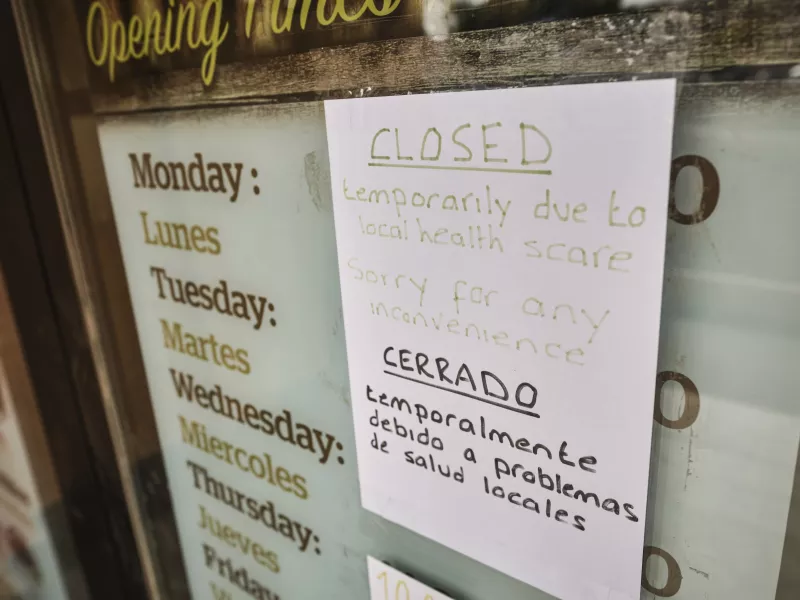 Opening Times
Monday:
Lunes
Tuesday:
Martes
Wednesday:
Miercoles
Thursday:
Jueves
Friday
CLOSED
temporarily due to
local health scare
Sorry for any
inconvenience
CERRADO
temporalmente
debido a problemas
de salud locales
0
0
0
10